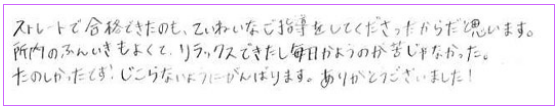 ストレートで合格できたのも、ていねいなご指導をしてくださったからだと思います。
所内のふんいきもよくて、リラックスできたし毎日かようのが苦じゃなかった。
たのしかったです！じこらないようにがんばります。ありがとうございました！